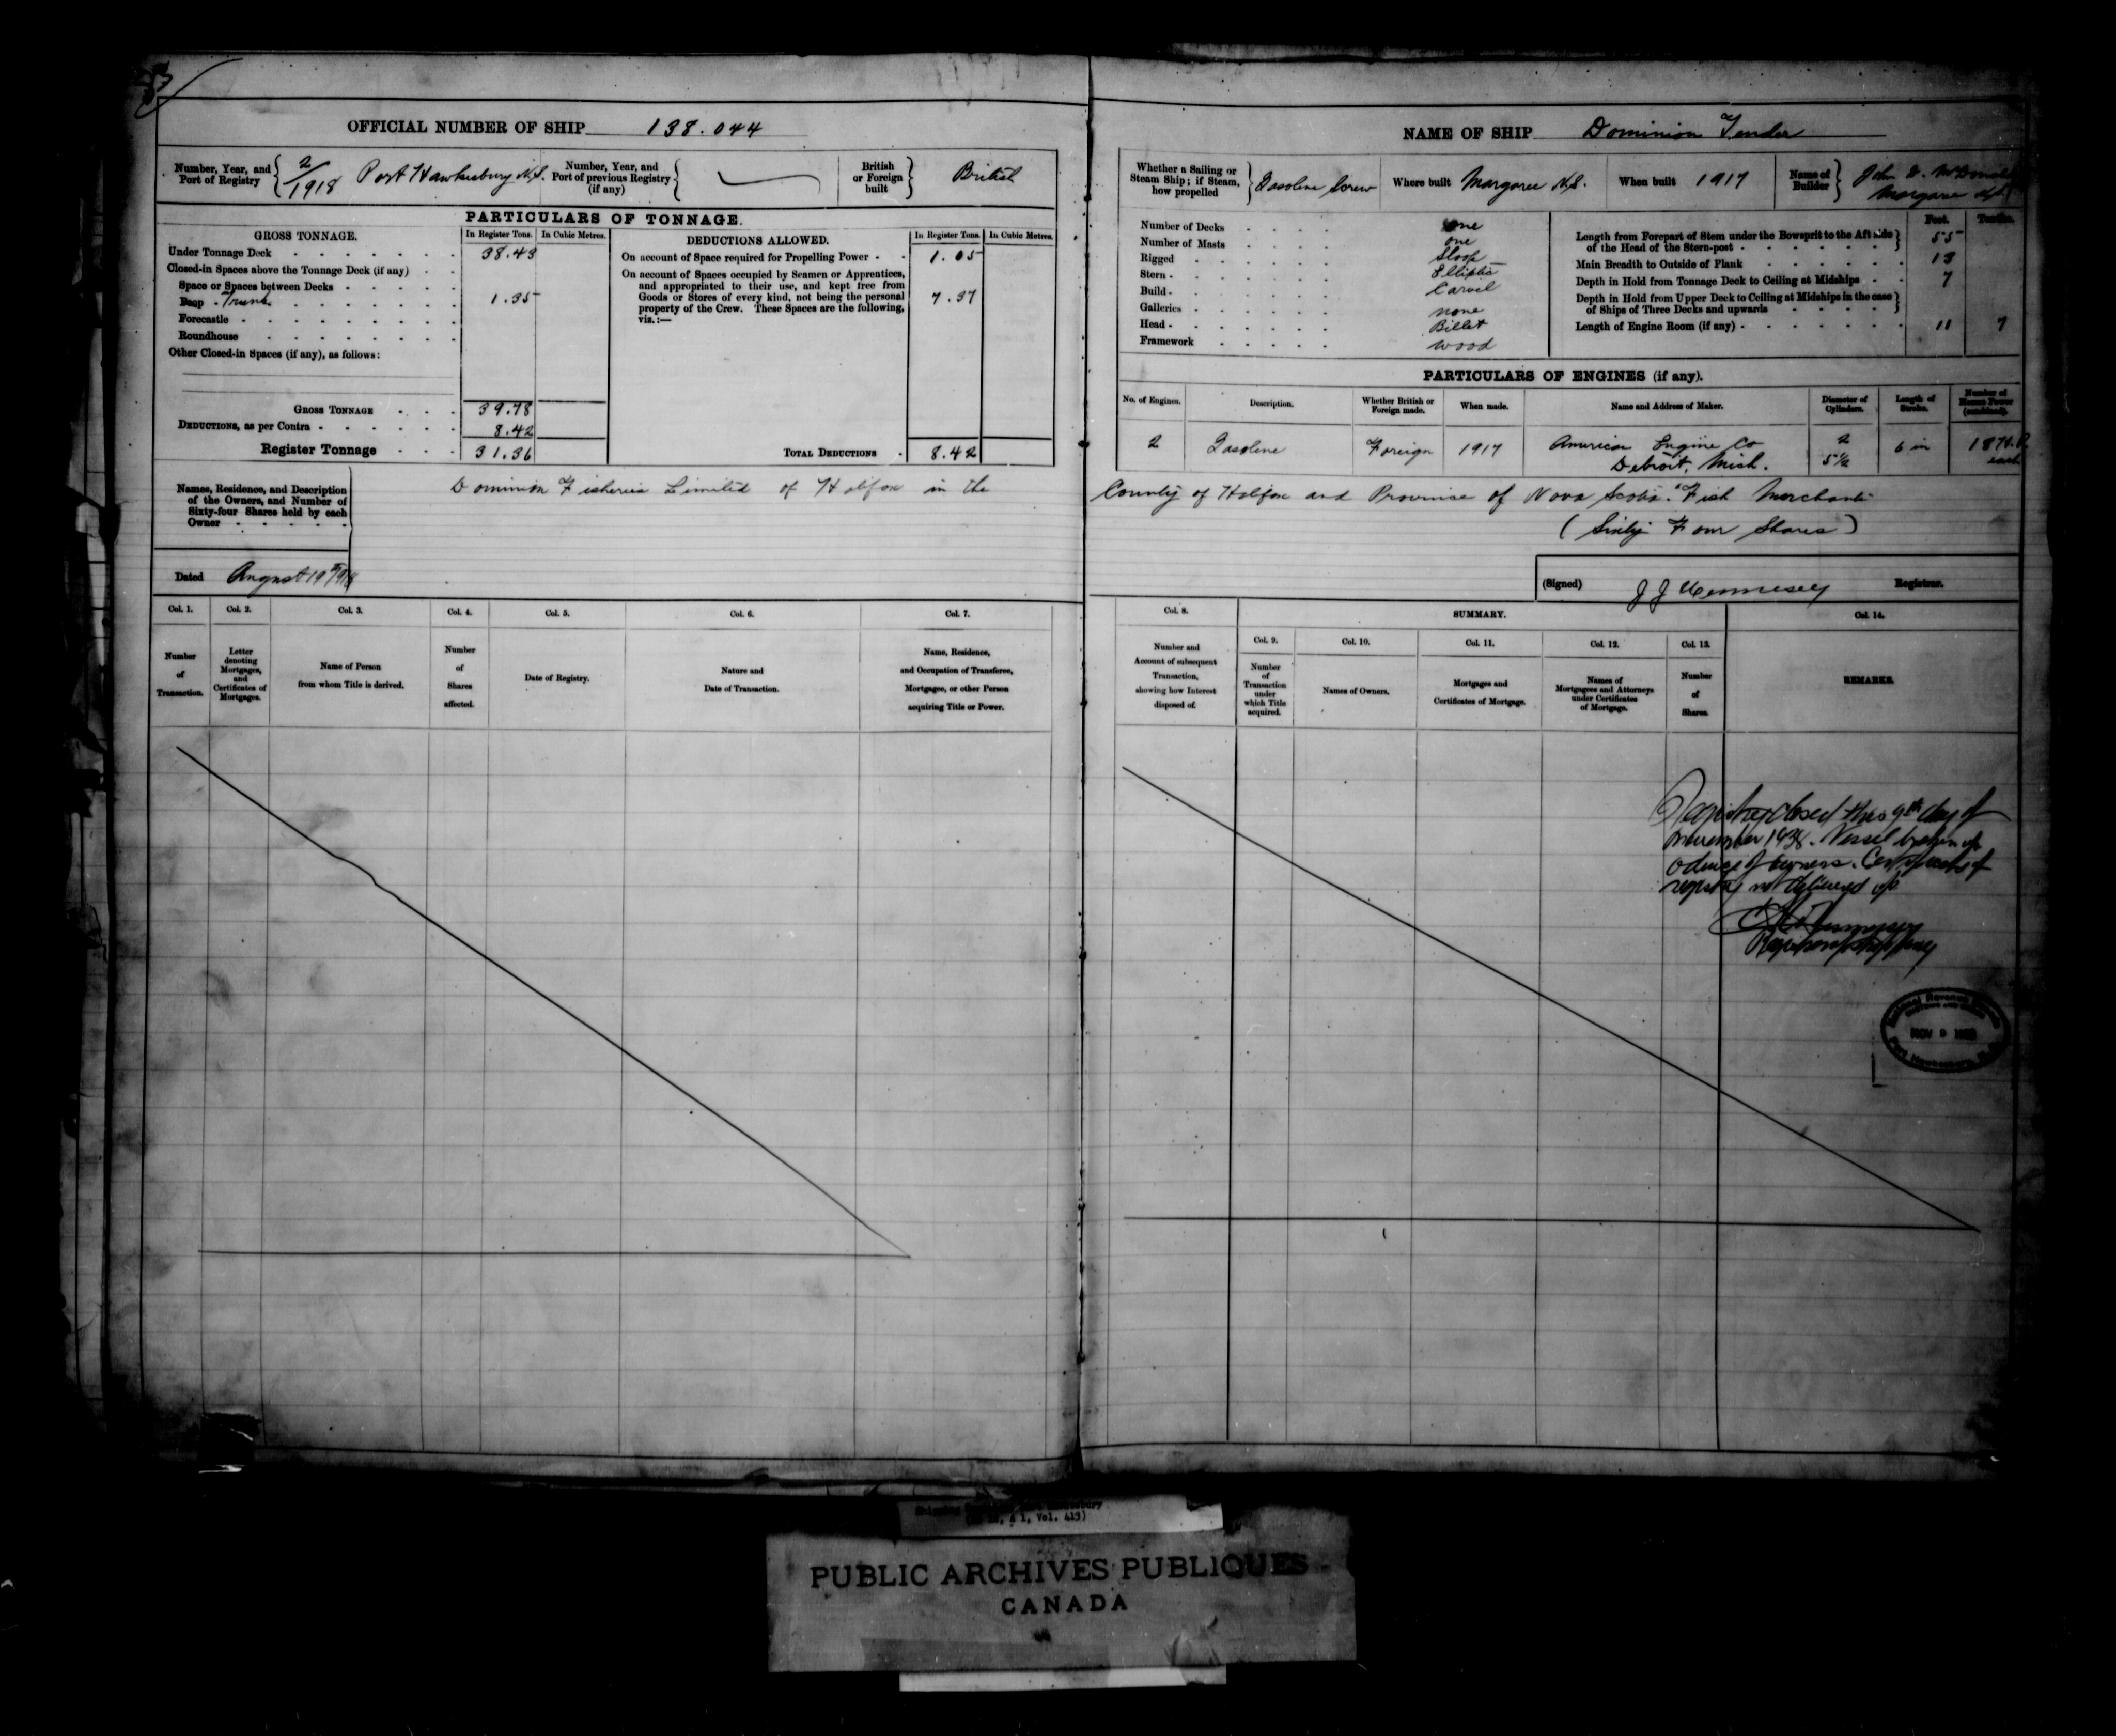 OFFICIAL NUMBER OF SHIP 138.044
Number, Year, and Port of Registry 2/1918 Port Hawkesbury N.S.
Number, Year, and Port of previous Registry (if any)
British or Foreign built British
PARTICULARS OF TONNAGE.
GROSS TONNAGE. In Register Tons. In Cubic Metres.
Under Tonnage Deck 38.43
Closed-in Spaces above the Tonnage Deck (if any)
Space or Spaces between Decks
Poop Trunk 1.35
Forecastle
Roundhouse
Other Closed-in Spaces (if any), as follows:
GROSS TONNAGE 39.78
DEDUCTIONS, as per Contra 8.42
Register Tonnage 31.36
DEDUCTIONS ALLOWED. In Register Tons. In Cubic Metres.
On account of Space required for Propelling Power 1.05
On account of Spaces occupied by Seamen or Apprentices,
and appropriated to their use, and kept free from
Goods or Stores of every kind, not being the personal 7.37
property of the Crew. These Spaces are the following,
viz.:—
TOTAL DEDUCTIONS 8.42
Names, Residence, and Description
of the Owners, and Number of
Sixty-four Shares held by each
Owner
Dominion Fisheries Limited of Halifax in the
Dated August 19th 1918
Col. 1. Col. 2. Col. 3. Col. 4. Col. 5. Col. 6. Col. 7.
Number of Transaction.
Letter denoting Mortgages, and Certificates of Mortgages.
Name of Person from whom Title is derived.
Number of Shares affected.
Date of Registry.
Nature and Date of Transaction.
Name, Residence, and Occupation of Transferee, Mortgagee, or other Person acquiring Title or Power.
NAME OF SHIP Dominion Tender
Whether a Sailing or Steam Ship; if Steam, how propelled Gasoline Screw
Where built Margaree N.S.
When built 1917
Name of Builder John D. McDonald Margaree N.S.
Number of Decks one
Number of Masts one
Rigged Sloop
Stern Elliptic
Build Carvel
Galleries none
Head Billet
Framework wood
Feet. Tenths.
Length from Forepart of Stem under the Bowsprit to the Aft side
of the Head of the Stern-post 55
Main Breadth to Outside of Plank 13
Depth in Hold from Tonnage Deck to Ceiling at Midships 7
Depth in Hold from Upper Deck to Ceiling at Midships in the case
of Ships of Three Decks and upwards
Length of Engine Room (if any) 11 7
PARTICULARS OF ENGINES (if any).
No. of Engines. Description. Whether British or Foreign made. When made. Name and Address of Maker. Diameter of Cylinders. Length of Stroke. Number of Horse Power (combined).
2 Gasoline Foreign 1917 American Engine Co Detroit, Mich. 2 5½ 6 in 18 H.P. each
County of Halifax and Province of Nova Scotia. Fish Merchants
(Sixty Four Shares)
(Signed) J J Hennesey Registrar.
Col. 8. SUMMARY. Col. 14.
Col. 9. Col. 10. Col. 11. Col. 12. Col. 13.
Number and Account of subsequent Transaction, showing how Interest disposed of.
Number of Transaction under which Title acquired.
Names of Owners.
Mortgages and Certificates of Mortgage.
Names of Mortgagees and Attorneys under Certificates of Mortgage.
Number of Shares.
REMARKS.
Registry closed this 9th day of
November 1938. Vessel broken up
advice of owners. Certificate of
registry not delivered up
Registrar of Shipping
National Revenue
NOV 9
Port Hawkesbury, N.S.
Shipping
1, Vol. 413)
PUBLIC ARCHIVES PUBLIQUES
CANADA